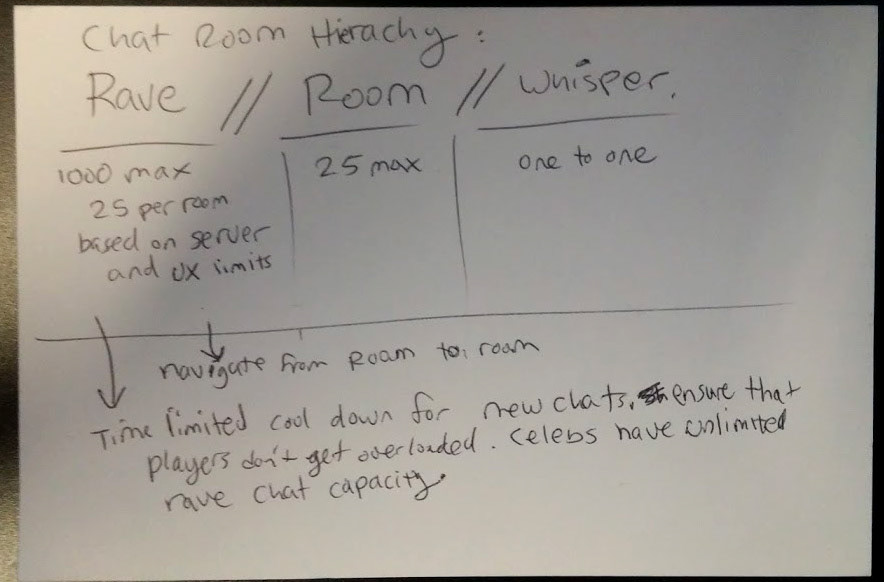 Chat Room Hierachy :
Rave // Room // Whisper.
1000 max
25 per room
based on server
and UX limits
25 max
one to one
navigate from Room to room
Time limited cool down for new chats, ensure that
players don't get overloaded. Celebs have unlimited
rave chat capacity.